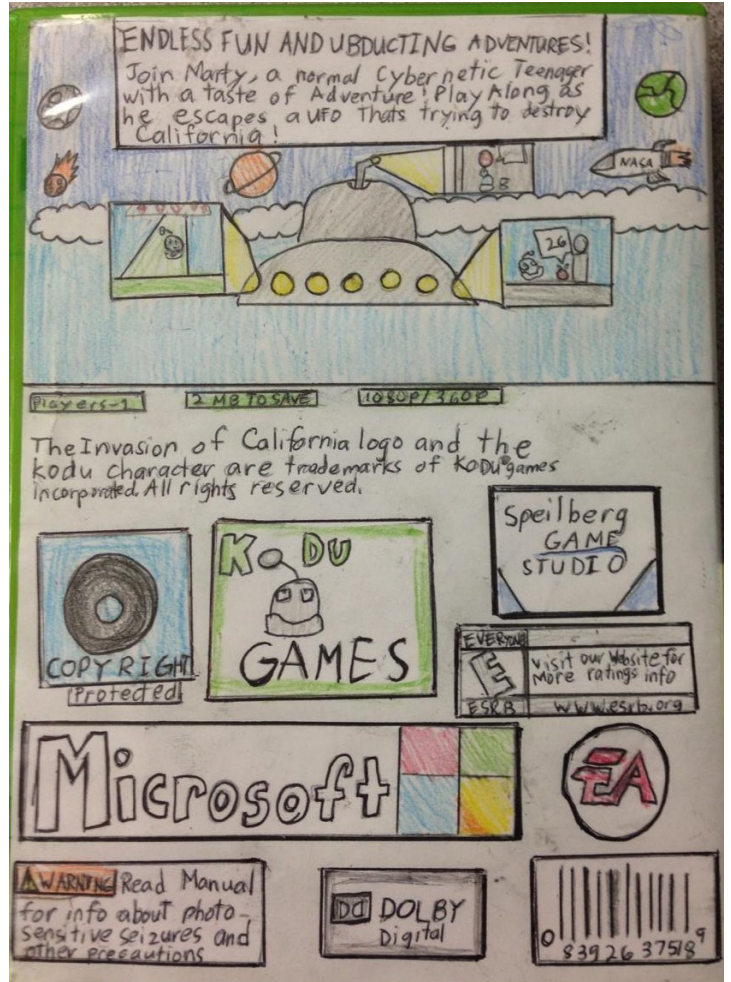 ENDLESS FUN AND UBDUCTING ADVENTURES!
Join Marty, a normal Cybernetic Teenager
with a taste of Adventure! Play Along as
he escapes a UFO Thats trying to destroy
California!
NASA
26
Players-1
2 MB TO SAVE
1080P/360P
The Invasion of California logo and the
kodu character are trademarks of KODU games
incorporated. All rights reserved.
Speilberg
GAME
STUDIO
KODU
GAMES
COPYRIGHT
Protected
EVERYONE
E
visit our Website for
More ratings info
ESRB
www.esrb.org
Microsoft
EA
WARNING Read Manual
for info about photo-
sensitive seizures and
other precautions
DOLBY
Digital
0 83926 37518 9